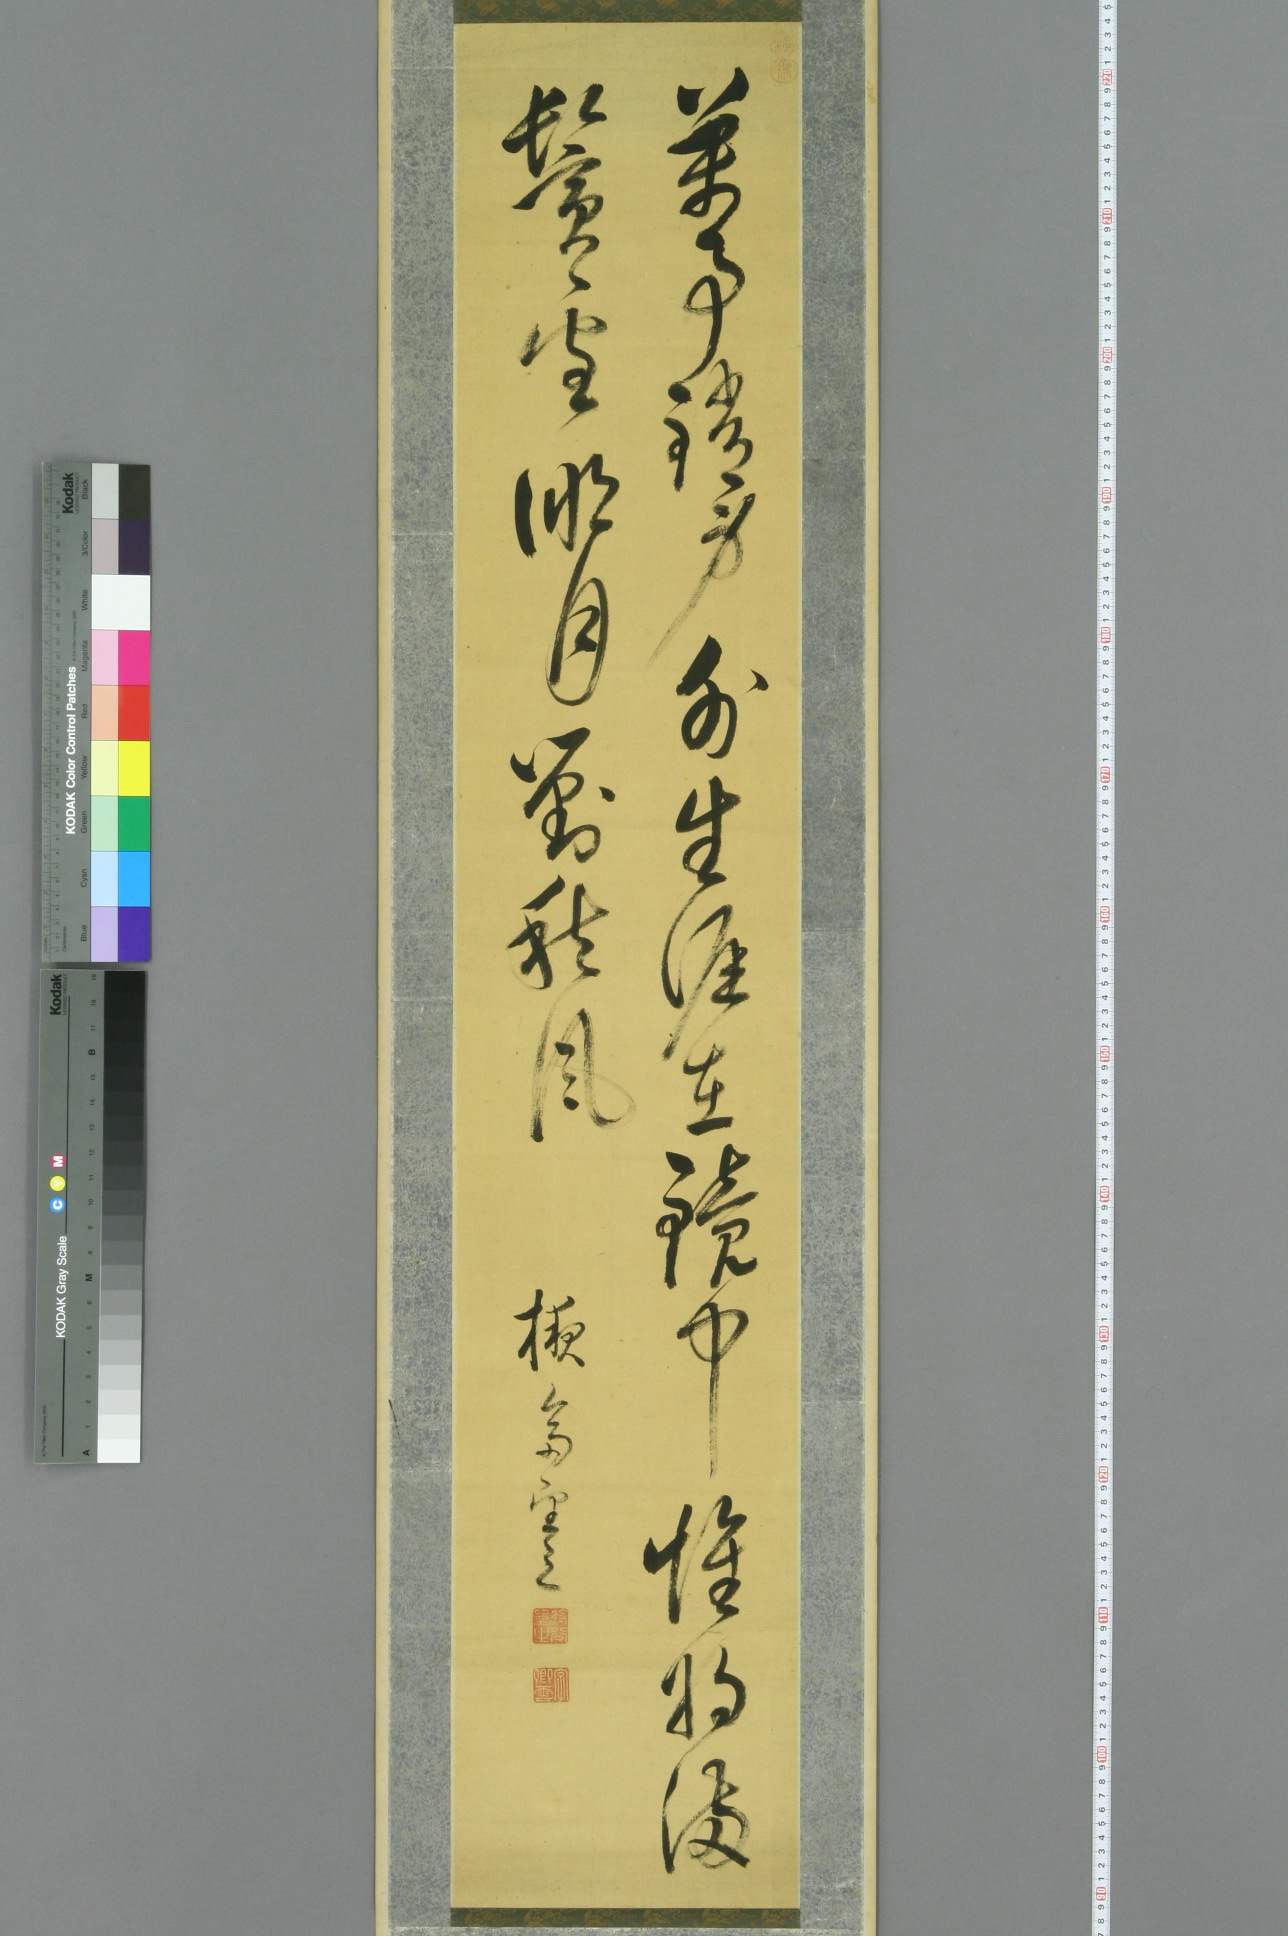 萬事銷身外生涯在鏡中惟将満
鬢雪明月對秋風
棭齋望之
狩谷望之
字卿雲
Kodak
KODAK Color Control Patches
Blue Cyan Green Yellow Red Magenta White 3/Color Black
Kodak
KODAK Gray Scale
C Y M
A 1 2 3 4 5 6 M 8 9 10 11 12 13 14 15 B 17 18 19